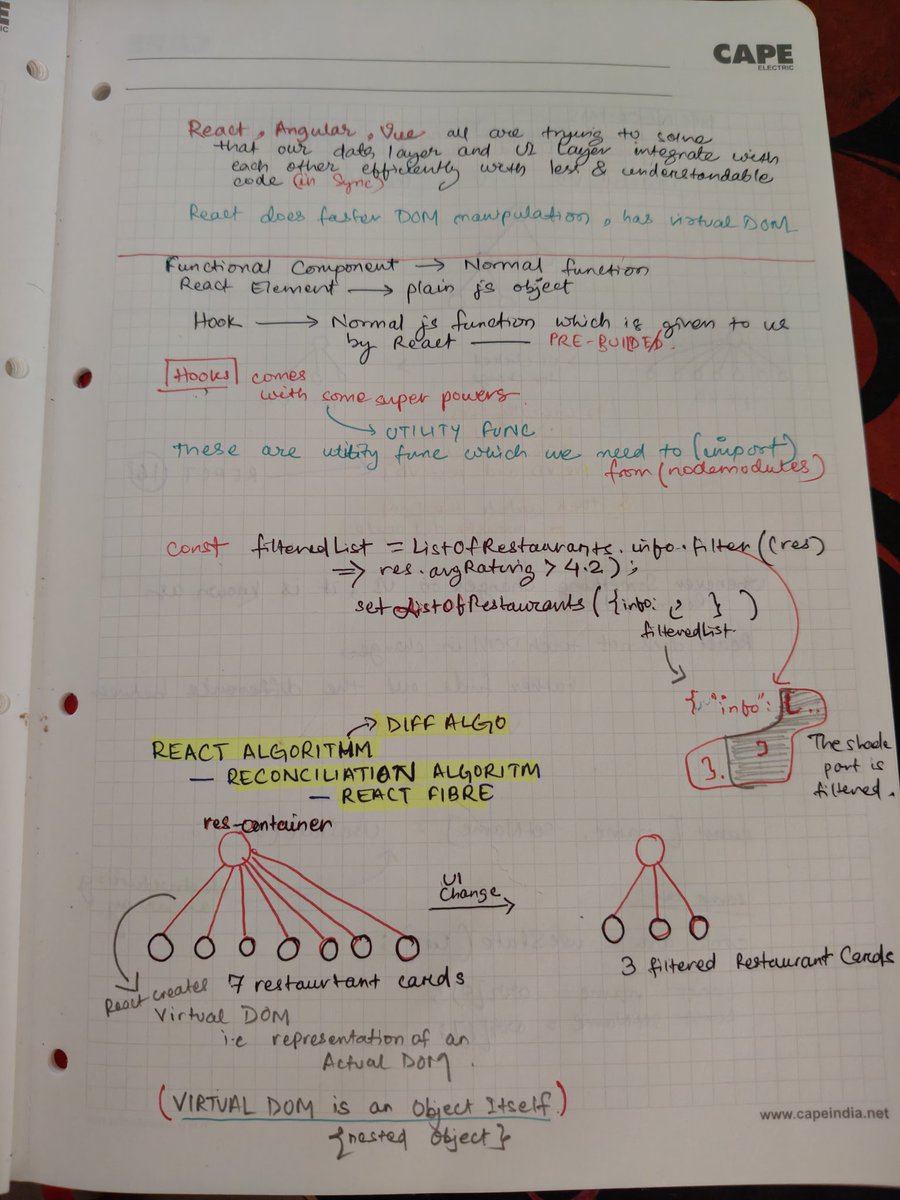 CAPE
ELECTRIC
React, Angular, Vue all are trying to solve
that our data layer and UI Layer integrate with
each other efficiently with less & understandable
code (in Sync)
React does faster DOM manipulation, has virtual DOM
Functional Component → Normal function
React Element → plain js object
Hook → Normal js function which is given to us
by React — PRE-BUILDED.
Hooks comes
with some super powers.
→ UTILITY FUNC
These are utility func which we need to (import)
from (nodemodules)
const filteredList = ListOfRestaurants.info.filter((res)
=> res.avgRating > 4.2);
set ListOfRestaurants({info: })
filteredList
{"info": [..
3.
The shade
part is
filtered.
→ DIFF ALGO
REACT ALGORITHM
— RECONCILIATION ALGORITM
— REACT FIBRE
res-container
UI
Change
7 restaurtant cards
3 filtered Restaurant Cards
React creates
Virtual DOM
i.e representation of an
Actual DOM.
(VIRTUAL DOM is an Object Itself.)
{nested Object}
www.capeindia.net